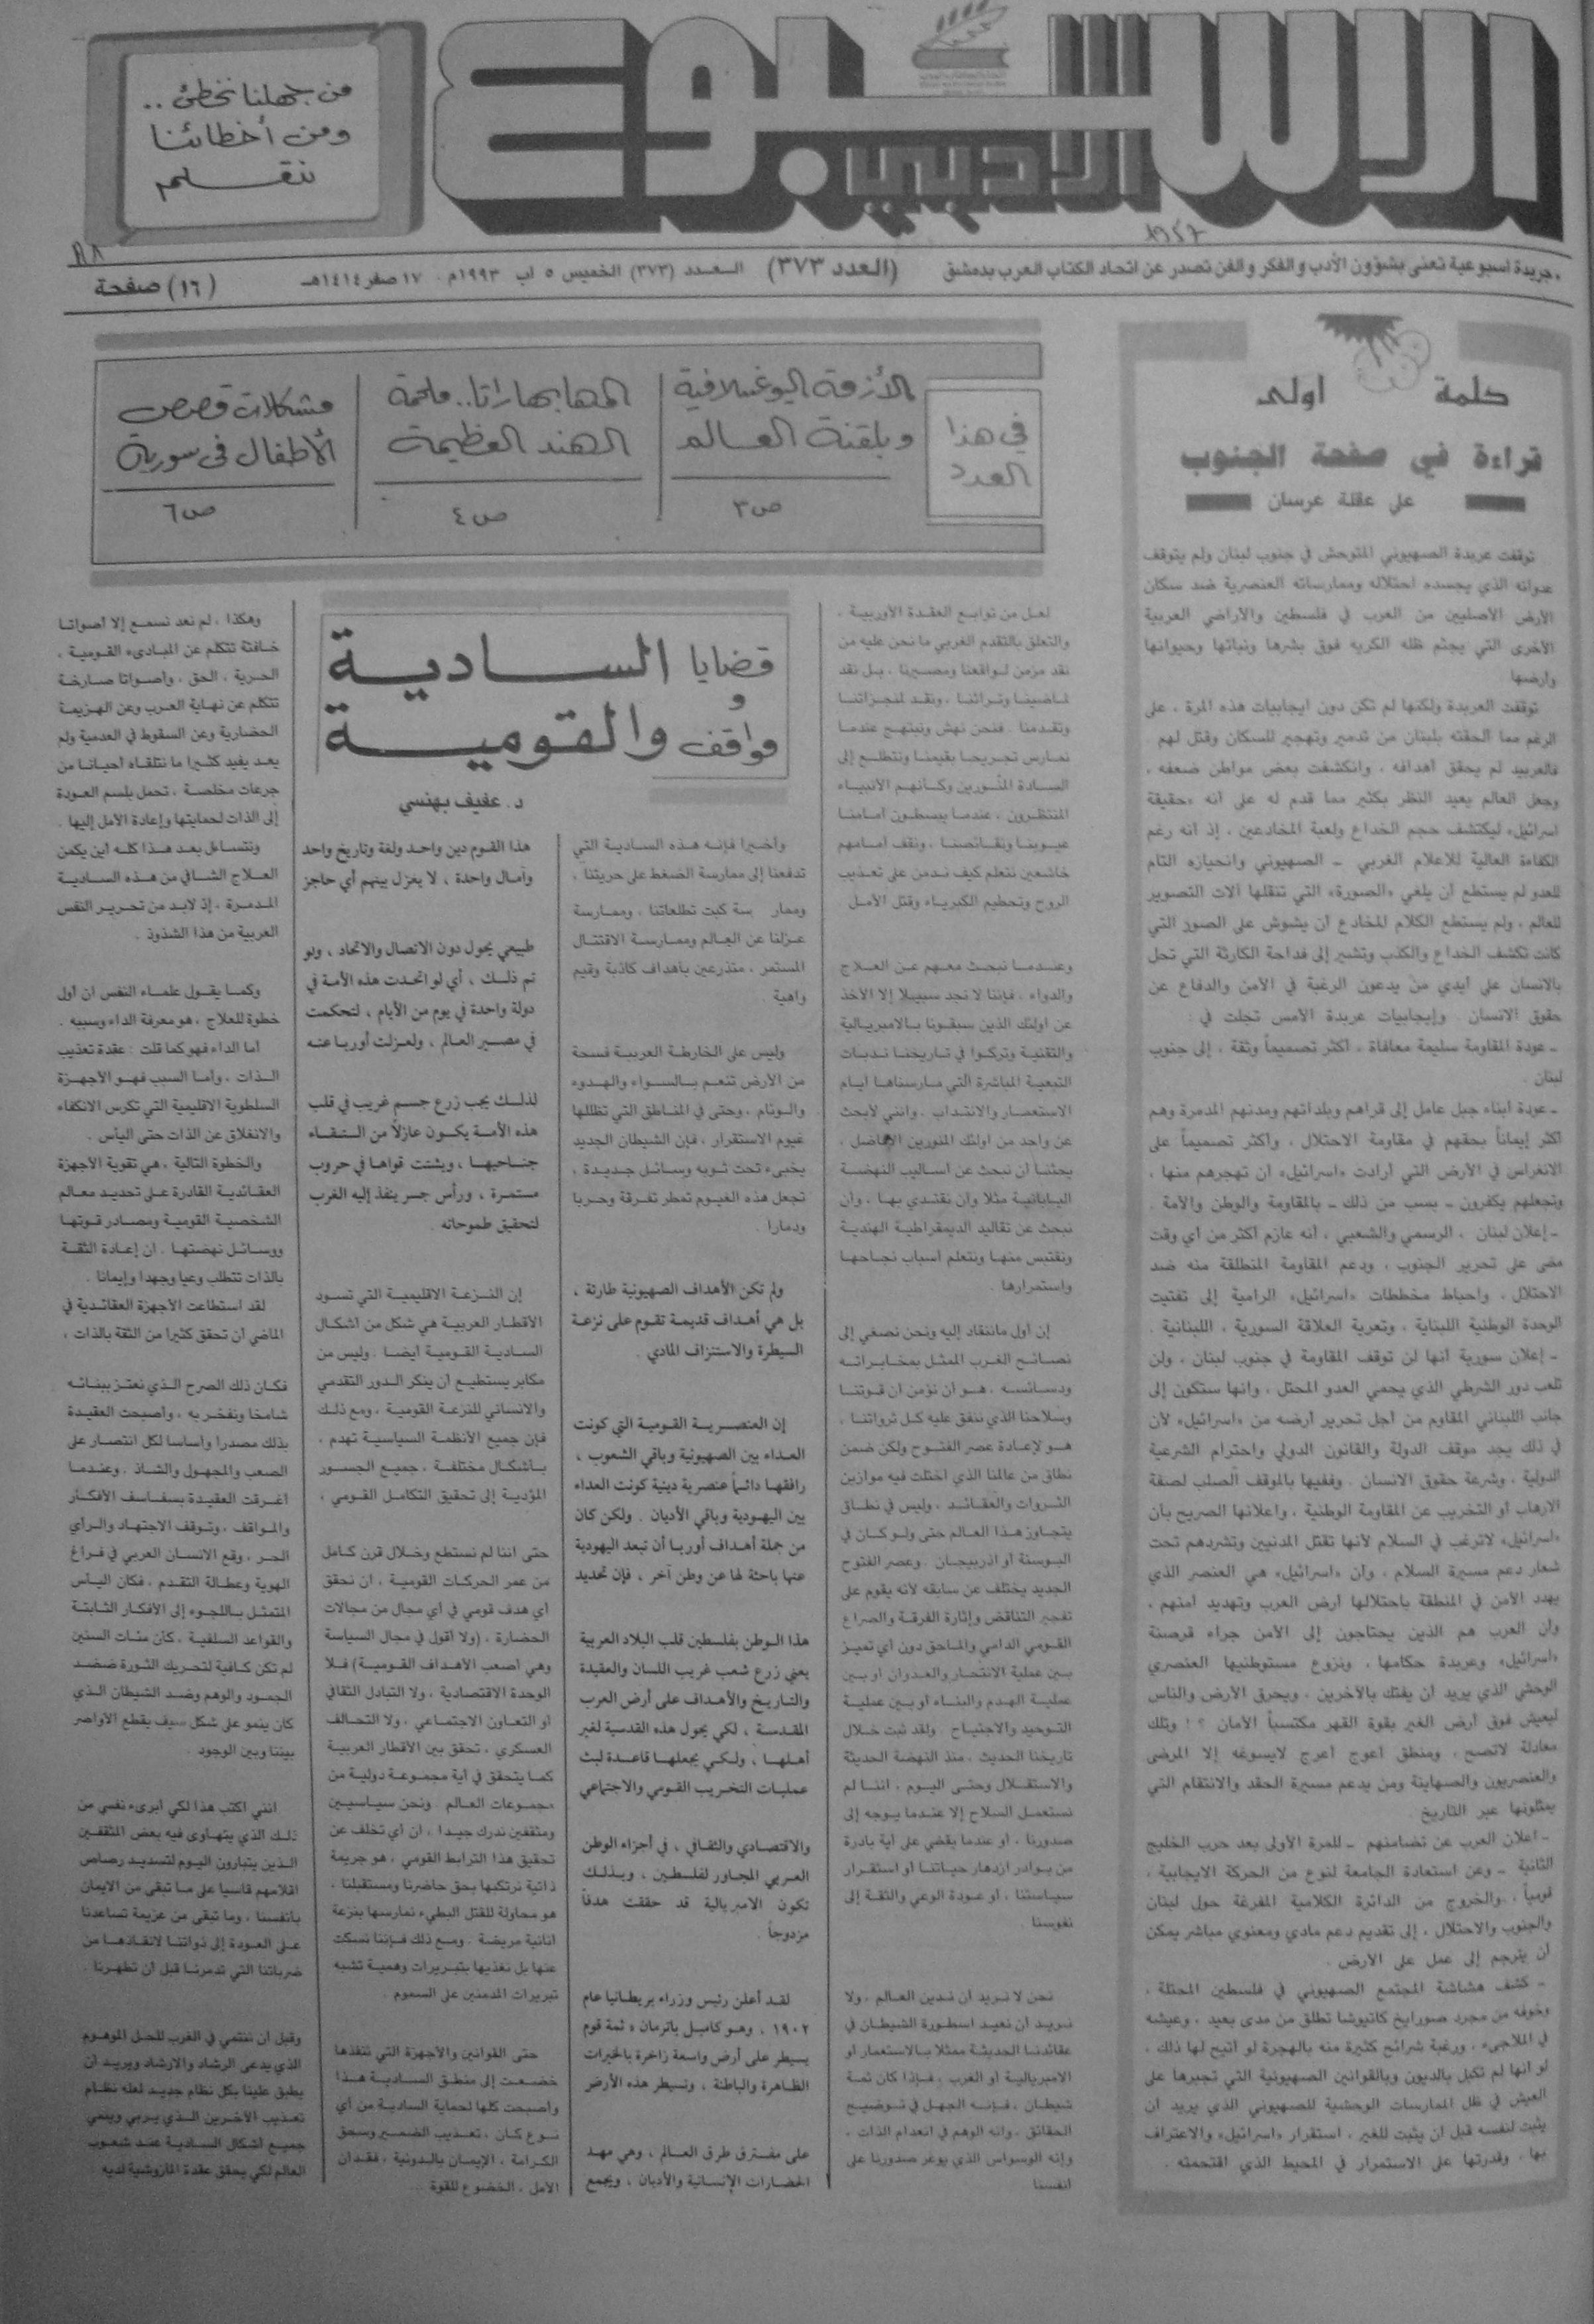 الأسبوع
الأدبي
من جهلنا نخطئ ..
ومن أخطائنا
نتعلم
«جريدة اسبوعية تعنى بشؤون الأدب والفكر والفن تصدر عن اتحاد الكتاب العرب بدمشق
(العدد ٣٧٣)
العدد (٣٧٣) الخميس ٥ اب ١٩٩٣م ٠ ١٧ صفر ١٤١٤هـ
(١٦) صفحة
كلمة اولى
قراءة في صفحة الجنوب
علي عقلة عرسان
توقفت عربدة الصهيوني المتوحش في جنوب لبنان ولم يتوقف
عدوانه الذي يجسده احتلاله وممارساته العنصرية ضد سكان
الأرض الأصليين من العرب في فلسطين والأراضي العربية
الأخرى التي يجثم ظله الكريه فوق بشرها ونباتها وحيوانها
وأرضها
توقفت العربدة ولكنها لم تكن دون ايجابيات هذه المرة ، على
الرغم مما الحقته بلبنان من تدمير وتهجير للسكان وقتل لهم .
فالعربيد لم يحقق أهدافه ، وانكشفت بعض مواطن ضعفه ،
وجعل العالم يعيد النظر بكثير مما قدم له على أنه «حقيقة
اسرائيل» ليكتشف حجم الخداع ولعبة المخادعين ، إذ انه رغم
الكفاءة العالية للاعلام الغربي ـ الصهيوني وانحيازه التام
للعدو لم يستطع أن يلغي «الصورة» التي تنقلها آلات التصوير
للعالم ، ولم يستطع الكلام المخادع أن يشوش على الصور التي
كانت تكشف الخداع والكذب وتشير إلى فداحة الكارثة التي تحل
بالانسان على أيدي من يدعون الرغبة في الأمن والدفاع عن
حقوق الانسان . وإيجابيات عربدة الأمس تجلت في :
ـ عودة المقاومة سليمة معافاة ، أكثر تصميماً وثقة ، إلى جنوب
لبنان .
ـ عودة أبناء جبل عامل إلى قراهم وبلداتهم ومدنهم المدمرة وهم
أكثر إيماناً بحقهم في مقاومة الاحتلال ، وأكثر تصميماً على
الانغراس في الأرض التي أرادت «اسرائيل» أن تهجرهم منها ،
وتجعلهم يكفرون ـ بسبب من ذلك ـ بالمقاومة والوطن والأمة .
ـ إعلان لبنان ، الرسمي والشعبي ، أنه عازم أكثر من أي وقت
مضى على تحرير الجنوب ، ودعم المقاومة المنطلقة منه ضد
الاحتلال ، وإحباط مخططات «اسرائيل» الرامية إلى تفتيت
الوحدة الوطنية اللبناية ، وتعرية العلاقة السورية ، اللبنانية .
ـ إعلان سورية أنها لن توقف المقاومة في جنوب لبنان ، ولن
تلعب دور الشرطي الذي يحمي العدو المحتل ، وانها ستكون إلى
جانب اللبناني المقاوم من أجل تحرير أرضه من «اسرائيل» لأن
في ذلك يجد موقف الدولة والقانون الدولي واحترام الشرعية
الدولية ، وشرعة حقوق الانسان . وقفيها بالموقف الصلب لصفة
الارهاب أو التخريب عن المقاومة الوطنية ، واعلانها الصريح بأن
«اسرائيل» لاترغب في السلام لأنها تقتل المدنيين وتشردهم تحت
شعار دعم مسيرة السلام ، وأن «اسرائيل» هي العنصر الذي
يهدد الأمن في المنطقة باحتلالها أرض العرب وتهديد أمنهم ،
وأن العرب هم الذين يحتاجون إلى الأمن جراء قرصنة
«اسرائيل» وعربدة حكامها ، ونزوع مستوطنيها العنصري
الوحشي الذي يريد أن يفتك بالآخرين ، ويحرق الأرض والناس
ليعيش فوق أرض الغير بقوة القهر مكتسباً الأمان ؟! وتلك
معادلة لاتصح ، ومنطق أعوج أعرج لايسوغه إلا المرضى
والعنصريون والصهاينة ومن يدعم مسيرة الحقد والانتقام التي
يمثلونها عبر التاريخ .
ـ اعلان العرب عن تضامنهم ـ للمرة الأولى بعد حرب الخليج
الثانية ـ وعن استعادة الجامعة لنوع من الحركة الايجابية ،
قومياً ، والخروج من الدائرة الكلامية المفرغة حول لبنان
والجنوب والاحتلال ، إلى تقديم دعم مادي ومعنوي مباشر يمكن
أن يترجم إلى عمل على الأرض .
ـ كشف هشاشة المجتمع الصهيوني في فلسطين المحتلة ،
وخوفه من مجرد صورايخ كاتيوشا تطلق من مدى بعيد ، وعيشه
في الملاجىء ، ورغبة شرائح كثيرة منه بالهجرة لو أتيح لها ذلك ،
لو أنها لم تكبل بالديون وبالقوانين الصهيونية التي تجبرها على
العيش في ظل الممارسات الوحشية للصهيوني الذي يريد أن
يثبت لنفسه قبل أن يثبت للغير ، استقرار «اسرائيل» والاعتراف
بها ، وقدرتها على الاستمرار في المحيط الذي اقتحمته .
في هذا
العدد
الأزمة اليوغسلافية
وبلقنة العالم
ص٣
المهابهاراتا.. ملحمة
الهند العظيمة
ص٤
مشكلات قصص
الأطفال في سورية
ص٦
قضايا
و
مواقف
السادية
والقومية
د. عفيف بهنسي
لعل من توابع العقدة الأوربية ،
والتعلق بالتقدم الغربي ما نحن عليه من
نقد مزمن لواقعنا ومصيرنا ، بل نقد
لماضينا وتراثنا ، ونقد لمنجزاتنا
وتقدمنا . فنحن نهش ونبتهج عندما
نمارس تجريحا بقيمنا ونتطلع إلى
السادة المنُورين وكأنهم الأنبياء
المنتظرون ، عندما يبسطون أمامنا
عيوبنا ونقائصنا ، ونقف أمامهم
خاشعين نتعلم كيف ندمن على تعذيب
الروح وتحطيم الكبرياء وقتل الأمل .
وعندما نبحث معهم عن العلاج
والدواء ، فإننا لا نجد سبيلا إلا الأخذ
عن اولئك الذين سبقونا بالامبريالية
والتقنية وتركوا في تاريخنا ندبات
التبعية المباشرة التي مارسناها أيام
الاستعمار والانتداب . وانني لأبحث
عن واحد من اولئك المنورين الأفاضل ،
يحثنا أن نبحث عن أساليب النهضة
اليابانية مثلا وأن نقتدي بها ، وأن
نبحث عن تقاليد الديمقراطية الهندية
ونقتبس منها ونتعلم أسباب نجاحها
واستمرارها .
إن أول ماننقاد إليه ونحن نصغي إلى
نصائح الغرب الممثل بمخابراته
ودسائسه ، هو أن نؤمن أن قوتنا
وسلاحنا الذي ننفق عليه كل ثرواتنا ،
هو لإعادة عصر الفتوح ولكن ضمن
نطاق من عالمنا الذي اختلت فيه موازين
الثروات والعقائد ، وليس في نطاق
يتجاوز هذا العالم حتى ولو كان في
البوسنة أو اذربيجان . وعصر الفتوح
الجديد يختلف عن سابقه لأنه يقوم على
تفجير التناقض وإثارة الفرقة والصراع
القومي الدامي والماحق دون أي تمييز
بين عملية الانتحار والعدوان أو بين
عملية الهدم والبناء أو بين عملية
التوحيد والاجتياح . ولقد ثبت خلال
تاريخنا الحديث ، منذ النهضة الحديثة
والاستقلال وحتى اليوم ، اننا لم
نستعمل السلاح إلا عندما يوجه إلى
صدورنا ، أو عندما يقضي على أية بادرة
من بوادر ازدهار حياتنا أو استقرار
سياستنا ، أو عودة الوعي والثقة إلى
نفوسنا .
نحن لا نريد أن ندين العالم ، ولا
نريد أن نعيد اسطورة الشيطان في
عقائدنا الحديثة ممثلا بالاستعمار أو
الامبريالية أو الغرب ، فإذا كان ثمة
شيطان ، فإنه الجهل في توضيح
الحقائق ، وانه الوهم في انعدام الذات ،
وإنه الوسواس الذي يوغر صدورنا على
أنفسنا .
وأخيرا فإنه هذه السادية التي
تدفعنا إلى ممارسة الضغط على حريتنا ،
وممار سة كبت تطلعاتنا ، وممارسة
عزلنا عن العالم وممارسة الاقتتال
المستمر ، متذرعين بأهداف كاذبة وقيم
واهية .
وليس على الخارطة العربية فسحة
من الأرض تنعم بالسواء والهدوء
والوئام ، وحتى في المناطق التي تظللها
غيوم الاستقرار ، فإن الشيطان الجديد
يخبىء تحت ثوبه وسائل جديدة ،
تجعل هذه الغيوم تمطر تفرقة وحربا
ودمارا .
ولم تكن الأهداف الصهيونية طارئة ،
بل هي أهداف قديمة تقوم على نزعة
السيطرة والاستنزاف المادي .
إن العنصرية القومية التي كونت
العداء بين الصهيونية وباقي الشعوب ،
رافقها دائماً عنصرية دينية كونت العداء
بين اليهودية وباقي الأديان . ولكن كان
من جملة أهداف أوربا أن تبعد اليهودية
عنها باحثة لها عن وطن آخر ، فإن تحديد
هذا الوطن بفلسطين قلب البلاد العربية
يعني زرع شعب غريب اللسان والعقيدة
والتاريخ والأهداف على أرض العرب
المقدسة ، لكي يحول هذه القدسية لغير
أهلها ، ولكي يجعلها قاعدة لبث
عمليات التخريب القومي والاجتماعي
والاقتصادي والثقافي ، في أجزاء الوطن
العربي المجاور لفلسطين ، وبذلك
تكون الامبريالية قد حققت هدفاً
مزدوجاً .
لقد أعلن رئيس وزراء بريطانيا عام
١٩٠٢ ، وهو كامبل باترمان « ثمة قوم
يسيطر على أرض واسعة زاخرة بالخيرات
الظاهرة والباطنة ، وتسيطر هذه الأرض
على مفترق طرق العالم ، وهي مهد
الحضارات الإنسانية والأديان ، ويجمع
هذا القوم دين واحد ولغة وتاريخ واحد
وآمال واحدة ، لا يعزل بينهم أي حاجز
طبيعي يحول دون الاتصال والاتحاد ، ولو
تم ذلك ، أي لو اتحدت هذه الأمة في
دولة واحدة في يوم من الأيام ، لتحكمت
في مصير العالم ، ولعزلت أوربا عنه
لذلك يجب زرع جسم غريب في قلب
هذه الأمة يكون عازلاً من التقاء
جناحيها ، ويشتت قواها في حروب
مستمرة ، ورأس جسر ينفذ إليه الغرب
لتحقيق طموحاته .
إن النزعة الاقليمية التي تسود
الأقطار العربية هي شكل من أشكال
السادية القومية أيضا . وليس من
مكابر يستطيع أن ينكر الدور التقدمي
والانساني للنزعة القومية ، ومع ذلك
فإن جميع الأنظمة السياسية تهدم ،
بأشكال مختلفة ، جميع الجسور
المؤدية إلى تحقيق التكامل القومي ،
حتى اننا لم نستطع وخلال قرن كامل
من عمر الحركات القومية ، أن نحقق
أي هدف قومي في أي مجال من مجالات
الحضارة ، (ولا أقول في مجال السياسة
وهي أصعب الأهداف القومية) فلا
الوحدة الاقتصادية ، ولا التبادل الثقافي
أو التعاون الاجتماعي ، ولا التحالف
العسكري ، تحقق بين الأقطار العربية
كما يتحقق في أية مجموعة دولية من
مجموعات العالم . ونحن سياسيين
ومثقفين ندرك جيدا ، أن أي تخلف عن
تحقيق هذا الترابط القومي ، هو جريمة
ذاتية نرتكبها بحق حاضرنا ومستقبلنا ،
هو محاولة للقتل البطيء نمارسها بنزعة
انانية مريضة . ومع ذلك فإننا نسكت
عنها بل نغذيها بتبريرات وهمية تشبه
تبريرات المدمنين على السموم .
حتى القوانين والأجهزة التي تنفذها
خضعت إلى منطق السادية هذا
وأصبحت كلها لحماية السادية من أي
نوع كان ، تعذيب الضمير وسحق
الكرامة ، الإيمان بالدونية ، فقدان
الأمل ، الخضوع للقوة ...
وهكذا ، لم نعد نسمع إلا أصواتا
خافتة تتكلم عن المبادىء القومية ،
الحرية ، الحق ، وأصواتا صارخة
تتكلم عن نهاية العرب وعن الهزيمة
الحضارية وعن السقوط في العدمية ولم
يعد يفيد كثيرا ما نتلقاه أحيانا من
جرعات مخلصة ، تحمل بلسم العودة
إلى الذات لحمايتها وإعادة الأمل إليها .
ونتساءل بعد هذا كله أين يكمن
العلاج الشافي من هذه السادية
المدمرة ، إذ لابد من تحرير النفس
العربية من هذا الشذوذ .
وكما يقول علماء النفس ان أول
خطوة للعلاج ، هو معرفة الداء وسببه .
أما الداء فهو كما قلت : عقدة تعذيب
الذات ، وأما السبب فهو الأجهزة
السلطوية الاقليمية التي تكرس الانكفاء
والانغلاق عن الذات حتى اليأس .
والخطوة التالية ، هي تقوية الأجهزة
العقائدية القادرة على تحديد معالم
الشخصية القومية ومصادر قوتها
ووسائل نهضتها . ان إعادة الثقة
بالذات تتطلب وعيا وجهدا وإيمانا .
لقد استطاعت الأجهزة العقائدية في
الماضي أن تحقق كثيرا من الثقة بالذات ،
فكان ذلك الصرح الذي نعتز ببنائه
شامخا ونفخر به ، وأصبحت العقيدة
بذلك مصدرا وأساسا لكل انتصار على
الصعب والمجهول والشاذ . وعندما
أغرقت العقيدة بسفاسف الأفكار
والمواقف ، وتوقف الاجتهاد والرأي
الحر ، وقع الانسان العربي في فراغ
الهوية وعطالة التقدم ، فكان اليأس
المتمثل باللجوء إلى الأفكار الثابتة
والقواعد السلفية ، كأن مئات السنين
لم تكن كافية لتحريك الثورة ضضد
الجمود والوهم وضد الشيطان الذي
كان ينمو على شكل سيف يقطع الأواصر
بيننا وبين الوجود .
انني اكتب هذا لكي أبرىء نفسي من
ذلك الذي يتهاوى فيه بعض المثقفين
الذين يتبارون اليوم لتسديد رصاص
أقلامهم قاسيا على ما تبقى من الايمان
بأنفسنا ، وما تبقى من عزيمة تساعدنا
على العودة إلى ذواتنا لانقاذها من
ضرباتنا التي تدمرنا قبل أن تطهرنا .
وقبل أن ننتمي في الغرب للحل الموهوم
الذي يدعى الرشاد والارشاد ويريد أن
يطبق علينا بكل نظام جديد لعله نظام
تعذيب الآخرين الذي يربي وينمي
جميع أشكال السادية عند شعوب
العالم لكي يحقق عقدة المازوشية لديه .